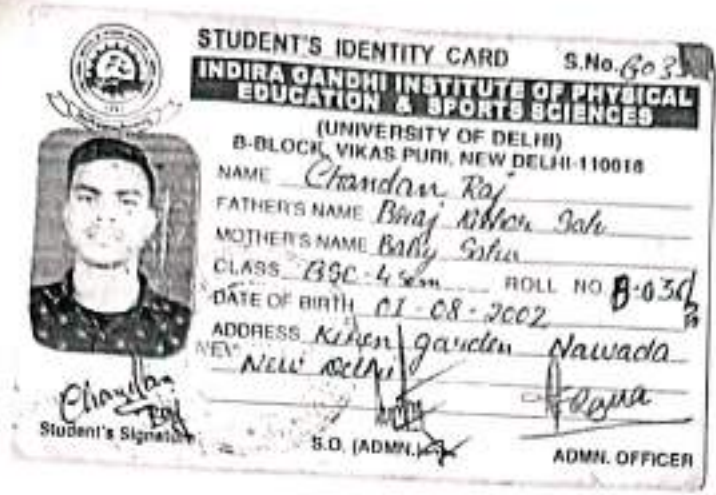 STUDENT'S IDENTITY CARD S.No.
INDIRA GANDHI INSTITUTE OF PHYSICAL
EDUCATION & SPORTS SCIENCES
(UNIVERSITY OF DELHI)
B-BLOCK, VIKAS PURI, NEW DELHI-110018
NAME Chandan Raj
FATHER'S NAME Kishor Sah
MOTHER'S NAME Baby
CLASS BSC-4 sem ROLL NO. B-036
DATE OF BIRTH 01-08-2002
ADDRESS Kiran garden Nawada
New Delhi
Chandan
Raj
Student's Signature
S.O. (ADMN.)
ADMN. OFFICER